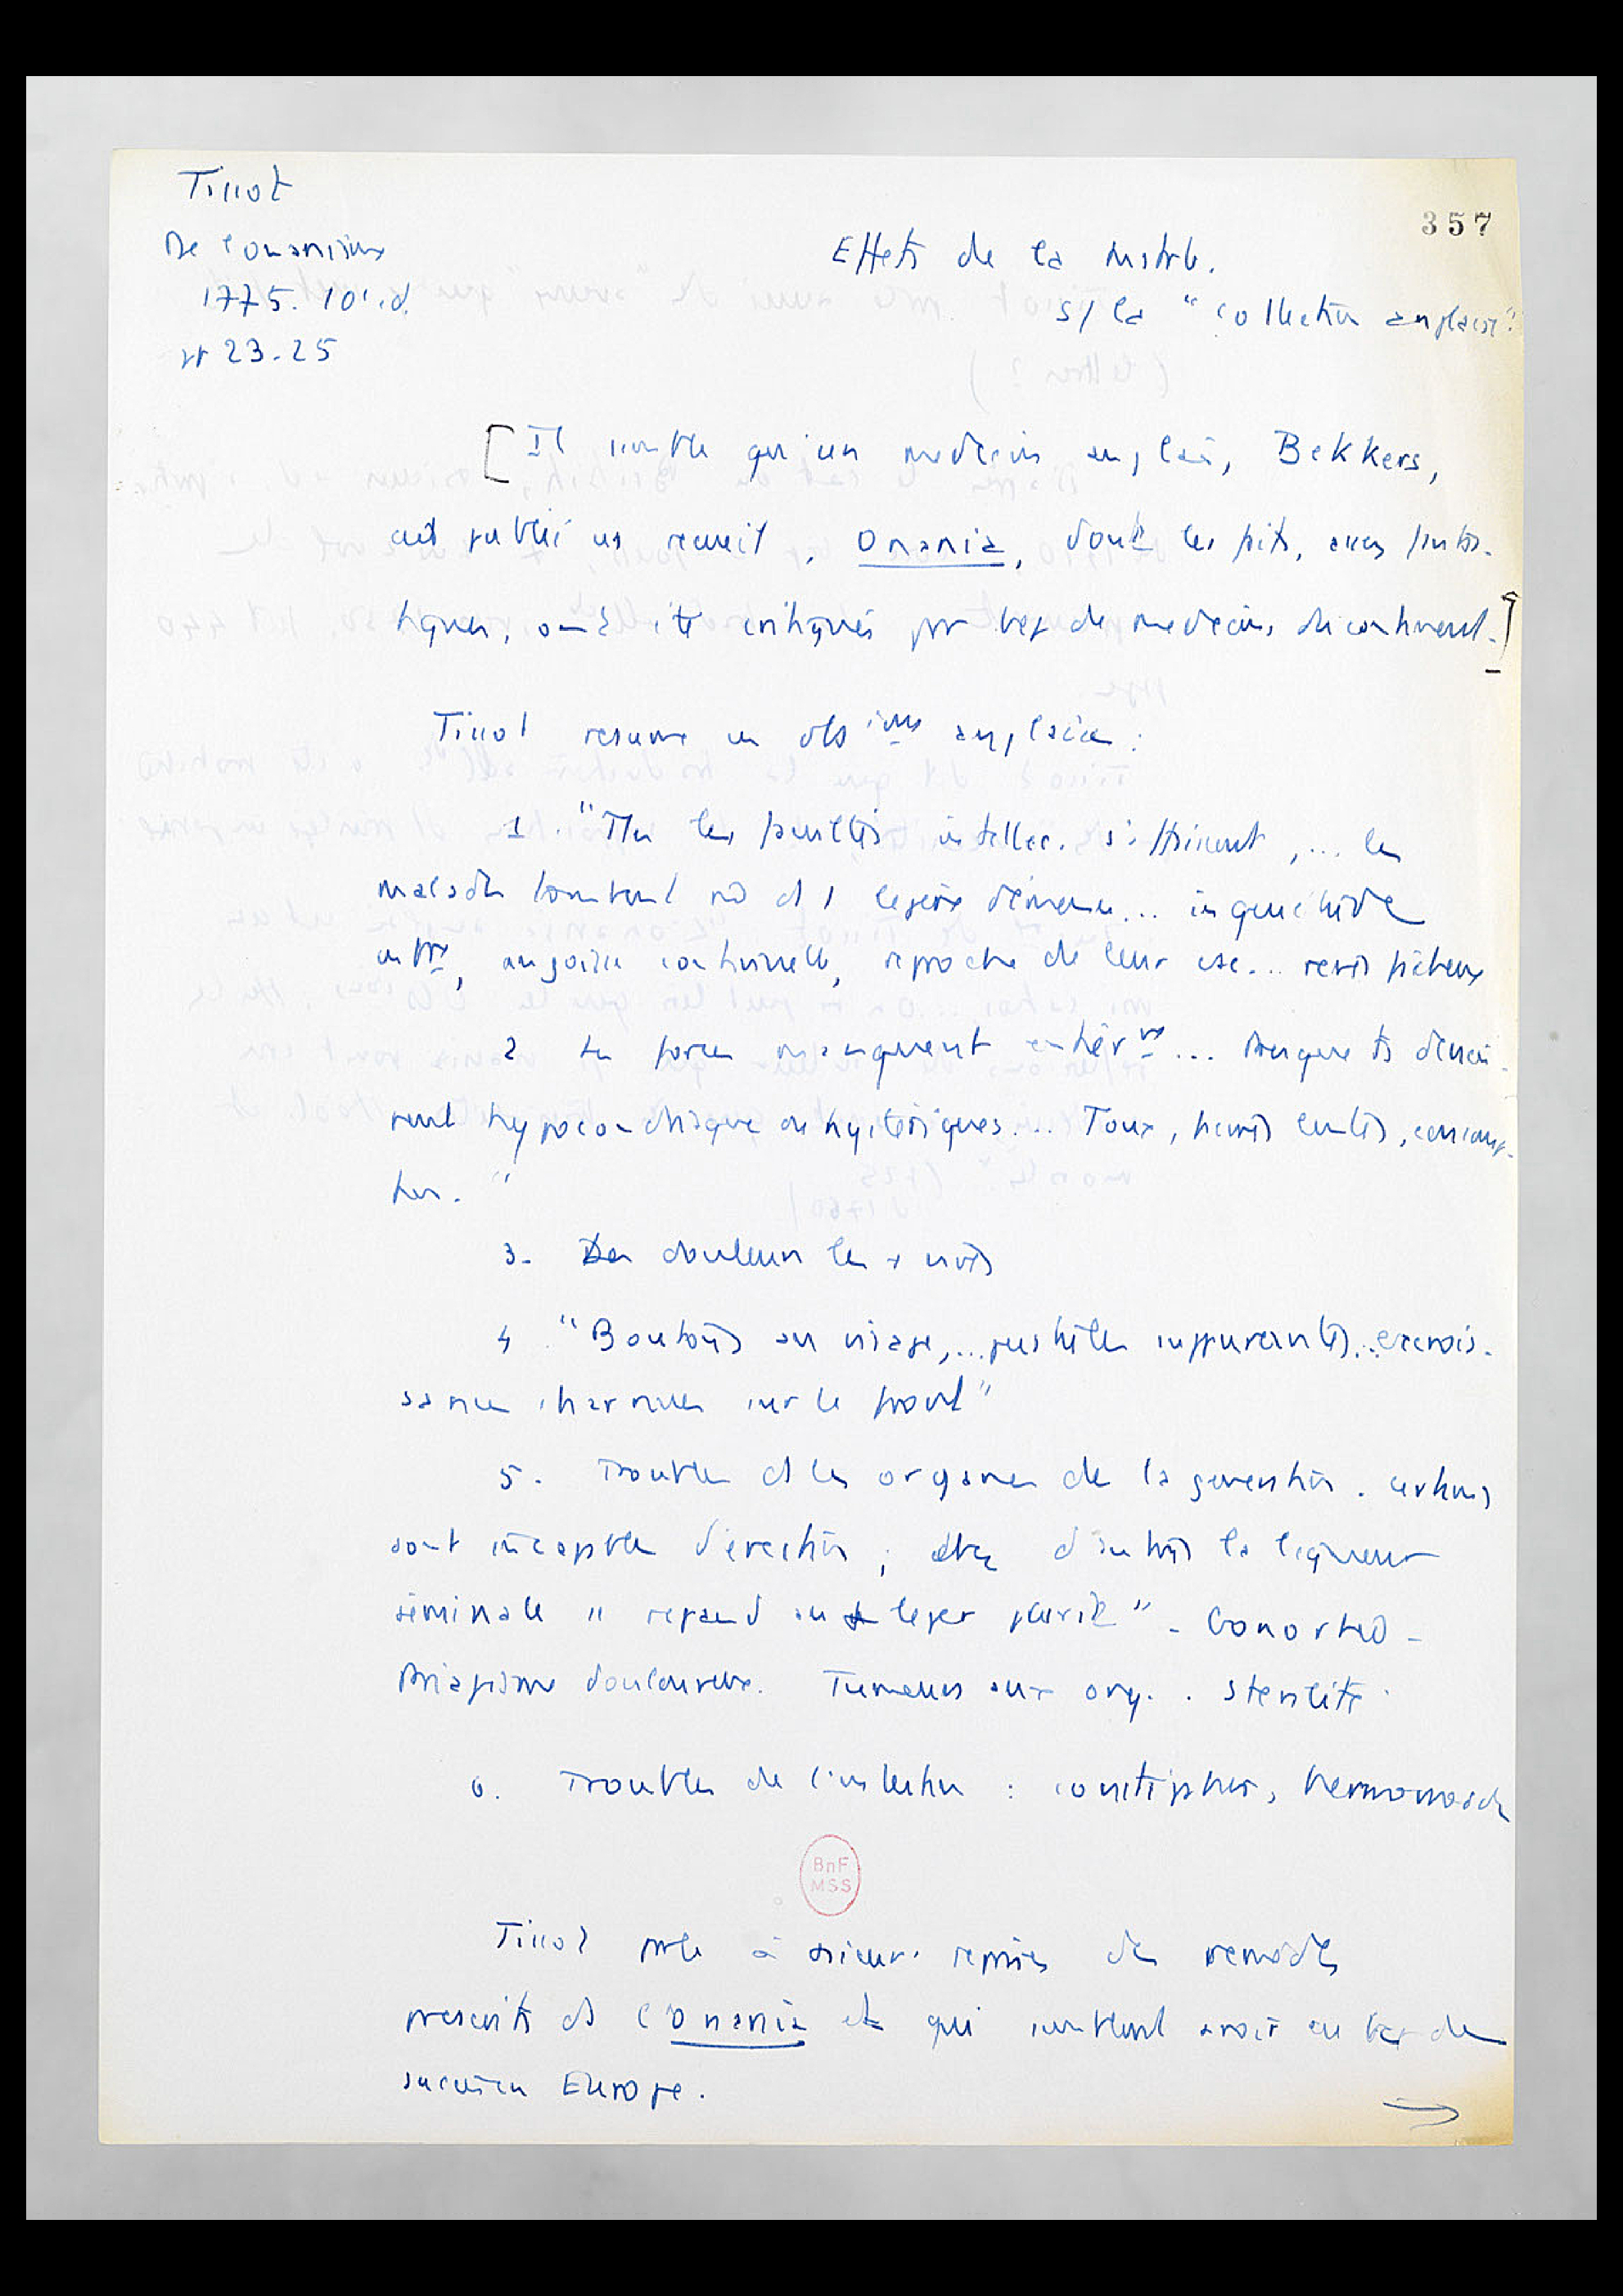 Tissot
De l'onanisme
1775. 10e ed.
pp 23-25
357
Effets de la mastrb.
s/ la "collection anglaise".
[Il semble qu'un medecin anglais, Bekkers,
ait publié un recueil, Onania, dont les faits, assez fantas-
tiques, ont été critiqués par bcp de medecins du continent.]
Tissot resume les obsions anglaises :
1. "Ttes les facultés intellec. s'affaissent,... les
malades tombent ds 1 legère démence... inquiétude
, angoisse continuelle, reproche de leur csc...
2 les forces manquent entièrmt... Presque ts devien-
nent hypocondriaques ou hystériques... Toux, fievres lentes, consomp-
tion."
3. Des douleurs les + vives
4 "Boutons au visage,... pustules suppurantes... excrois-
sances charnues sur le front"
5. Troubles ds les organes de la generation. certains
sont incapables d'erection ; chez d'autres la liqueur
séminale se repand au leger prurit" - Gonorrhée -
Priapisme douloureux. Tumeurs aux org. . sterilité.
6. Troubles de l'intestin : constipation, hemorroides
BnF
MSS
Tissot parle à reprises des remèdes
prescrits ds l'Onania et qui semblent avoir eu bcp de
succès en Europe.
→